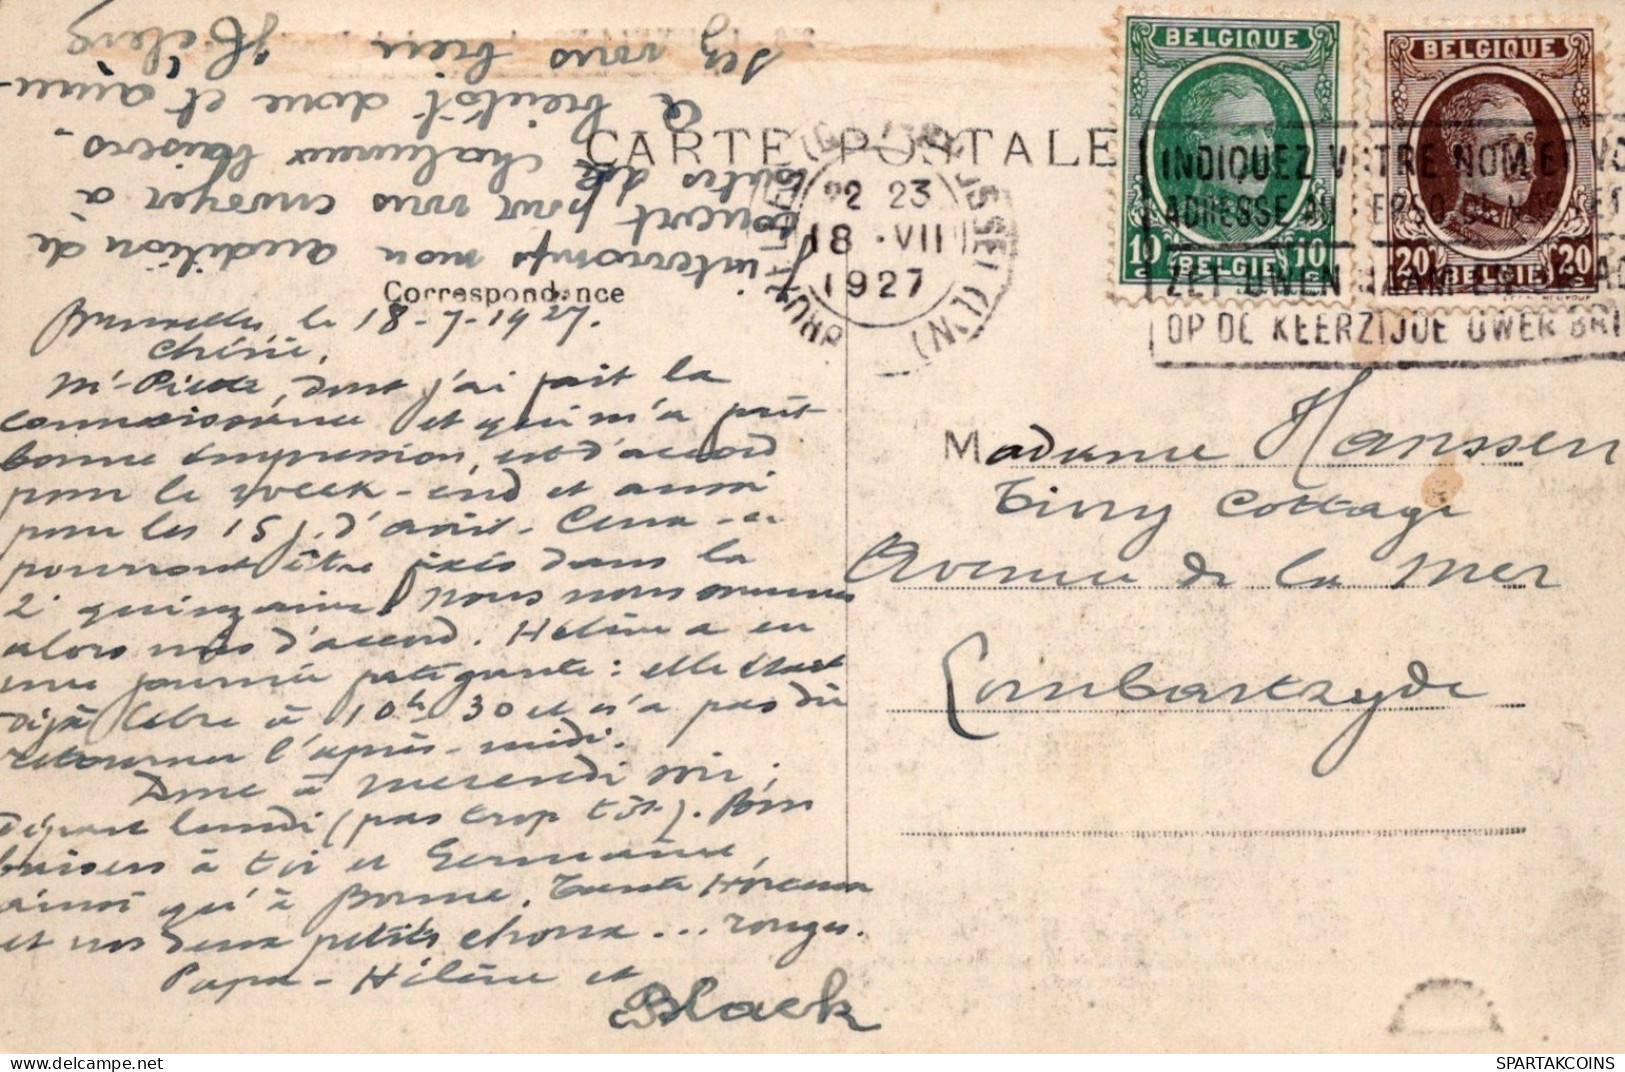 CARTE POSTALE
Correspondance
BELGIQUE
10 10
BELGIË
BELGIQUE
20 20
BELGIË
22 23
18 · VII
1927
INDIQUEZ VOTRE NOM ET VO
ADRESSE AU VERSO
ZET UWEN NAAM EN
OP DE KEERZIJDE UWER BRI
Bruxelles, le 18-7-1927.
Chérie,
Mr Piette, dont j'ai fait la
connaissance et qui m'a fait
bonne impression, est d'accord
pour le week-end et aussi
pour les 15 j. d'août. Ceux-ci
pourront être fixés dans la
2e quinzaine. Nous nous sommes
alors mis d'accord. Hélène a eu
une journée fatigante : elle était
déjà libre à 10h 30 et n'a pas dû
retourner l'après-midi.
Donc à mercredi soir ;
départ lundi (pas trop tôt). Bons
baisers à toi et Germaine,
ainsi qu'à Bonne, Tante
et nos deux petits choux ... rouges.
Papa - Hélène et
Black
J'interromps mon audition de
concert pour vous envoyer à
toutes de chaleureux baisers.
A bientôt donc et amu-
sez vous bien
Hélène
Madame Hanssen
Tinny Cottage
Avenue de la Mer
Lombartzyde
SPARTAKCOINS
WWW.SPARTAKCOINS.COM